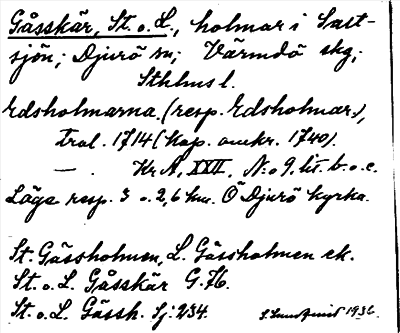 Gåsskär, St. o. L., holmar i Salt-
sjön; Djurö sn; Värmdö skg;
Sthlms l.
Edsholmarna, (resp. Edsholmar.),
Tral. 1714 (Kop. omkr. 1740).
—. Kr A, XXII, N:o 9, lit. b. o. c.
Läge resp. 3 o. 2,6 km. Ö Djurö kyrka.
St. Gåssholmen, L. Gåssholmen ek.
St. o. L. Gåsskär G. 76.
St. o. L. Gåssh. Sj: 234.
1936.